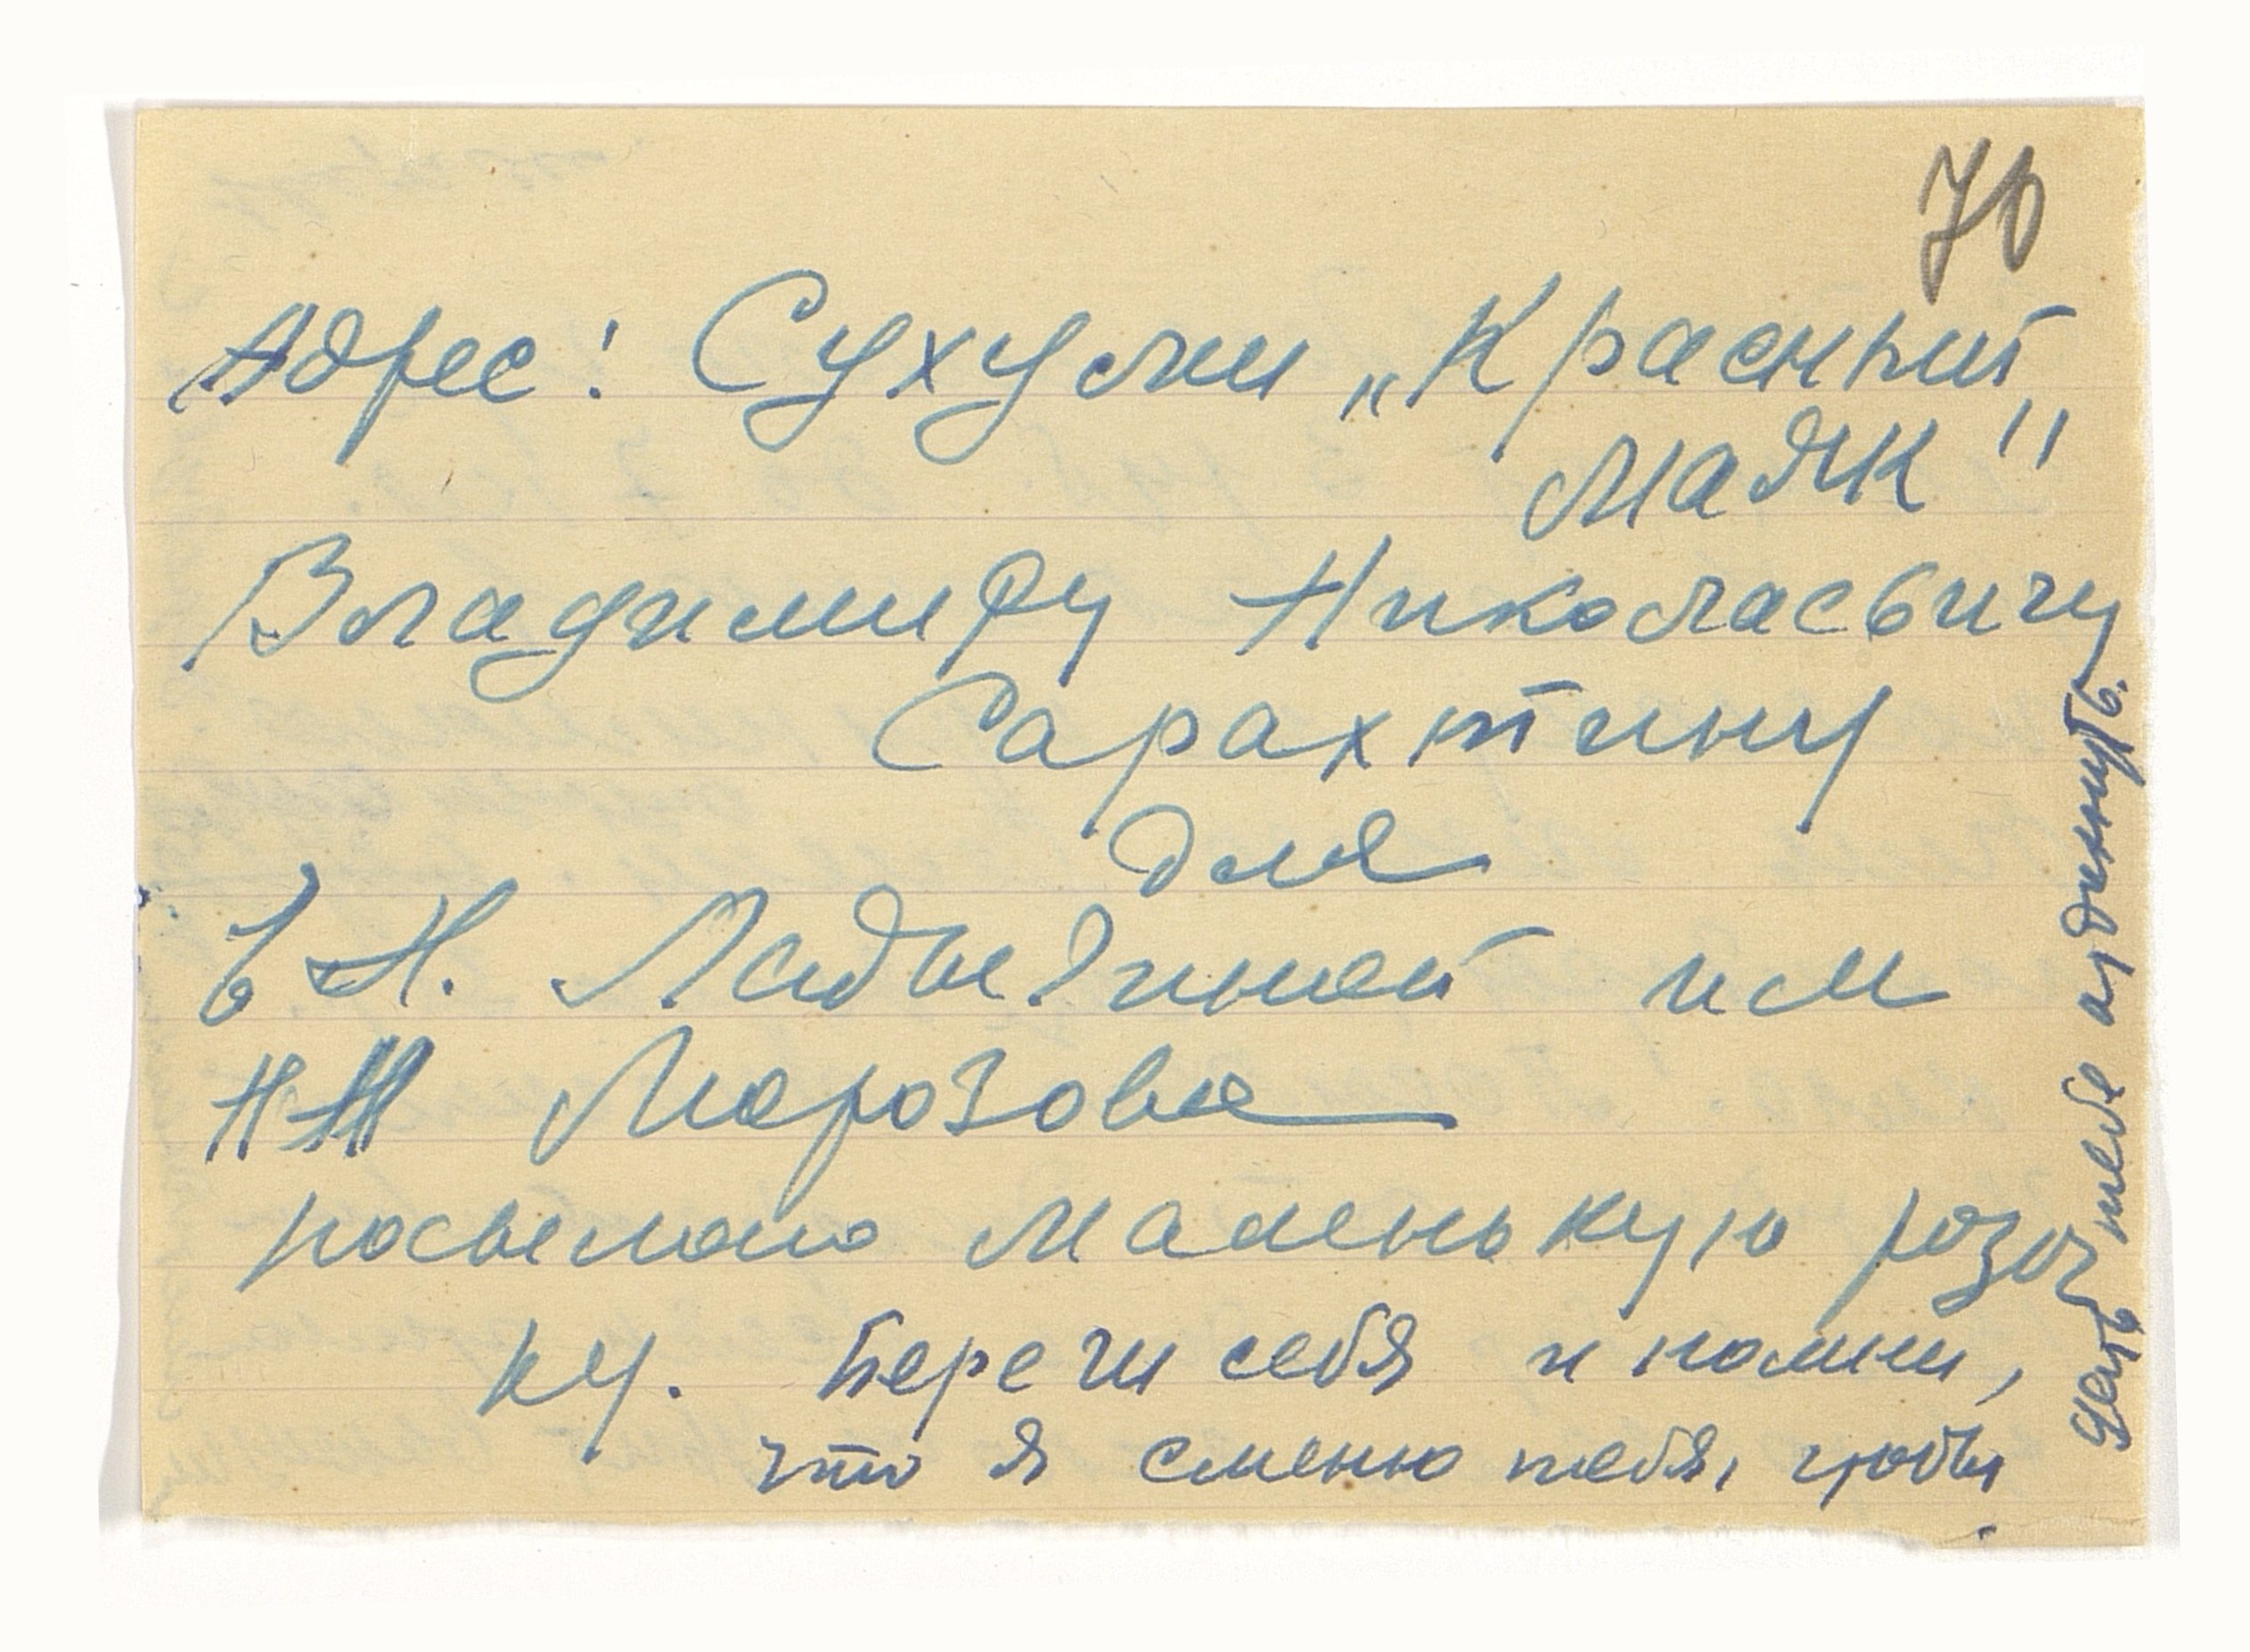 70
Адрес: Сухуми „Красный
маяк"
Владимиру Николаевичу
Сарахтину
для
Н.
Морозова
посылаю маленькую розоч
ку. Береги себя и помни,
что я сменю тебя, чтобы
дать тебе отдохнуть.